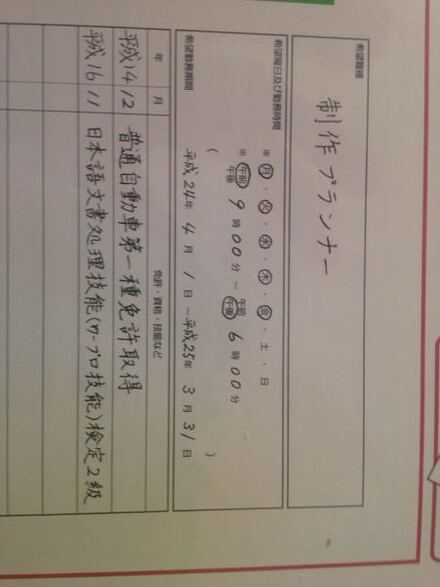 希望職種
制作プランナー
希望曜日及び勤務時間
※ 月・火・水・木・金・土・日
※ 午前 午後 9時00分～午前 午後 6時00分
希望勤務期間
( 平成24年4月1日～平成25年3月31日 )
年 月 免許・資格・技能など
平成14 12 普通自動車第一種免許取得
平成16 11 日本語文書処理技能(ワープロ技能)検定2級